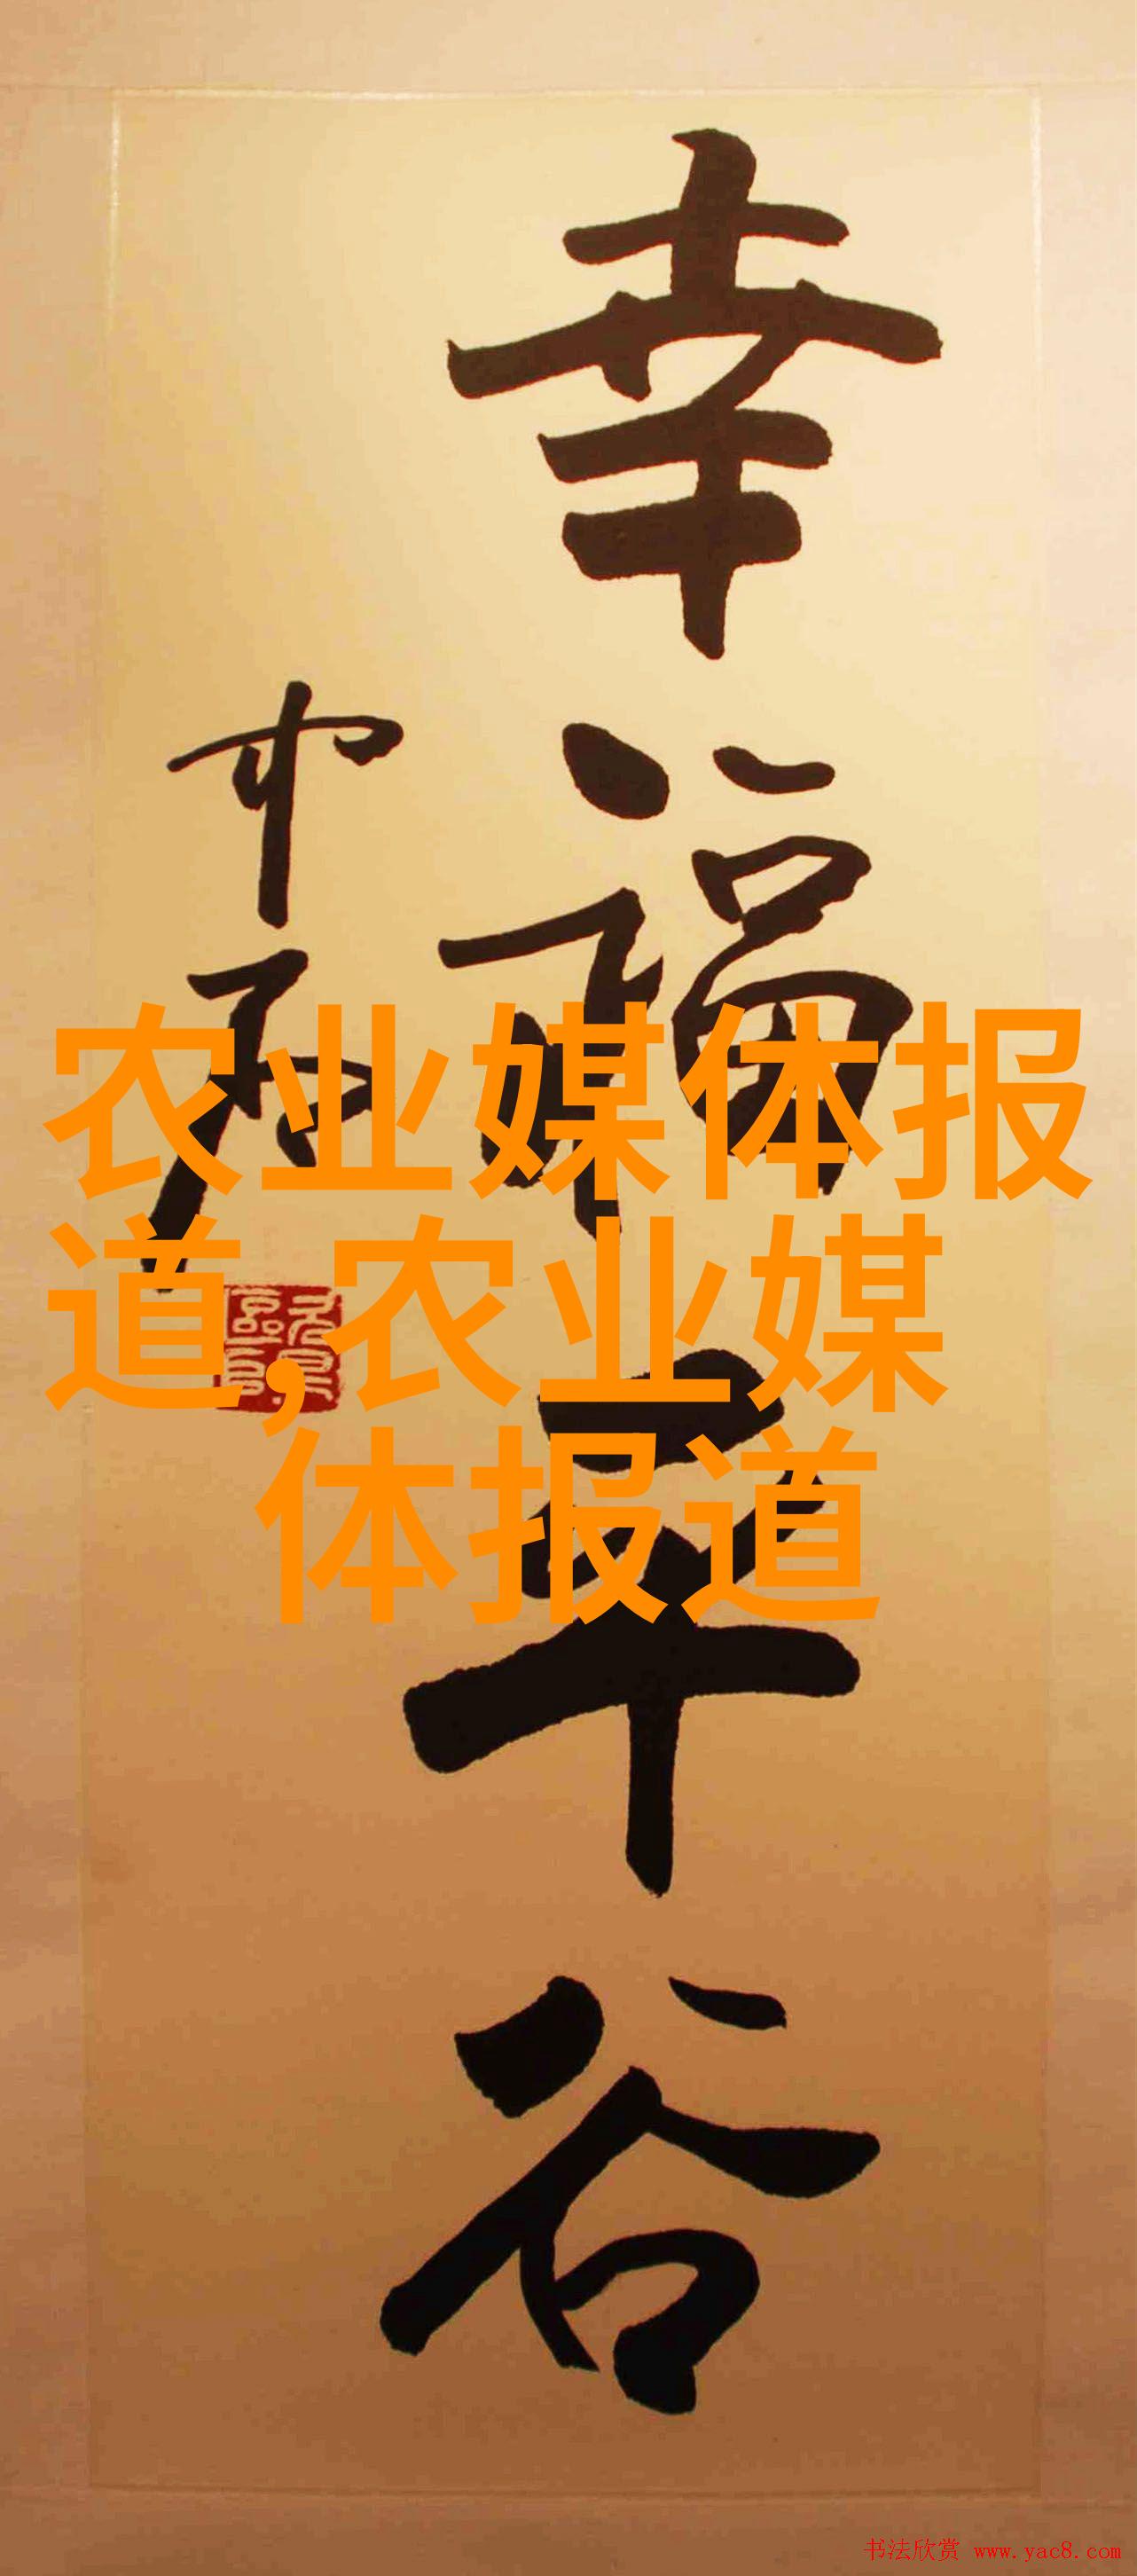 幸福平谷
中石
农业媒体报
道,农业媒
体报道
书法欣赏 www.yac8.com